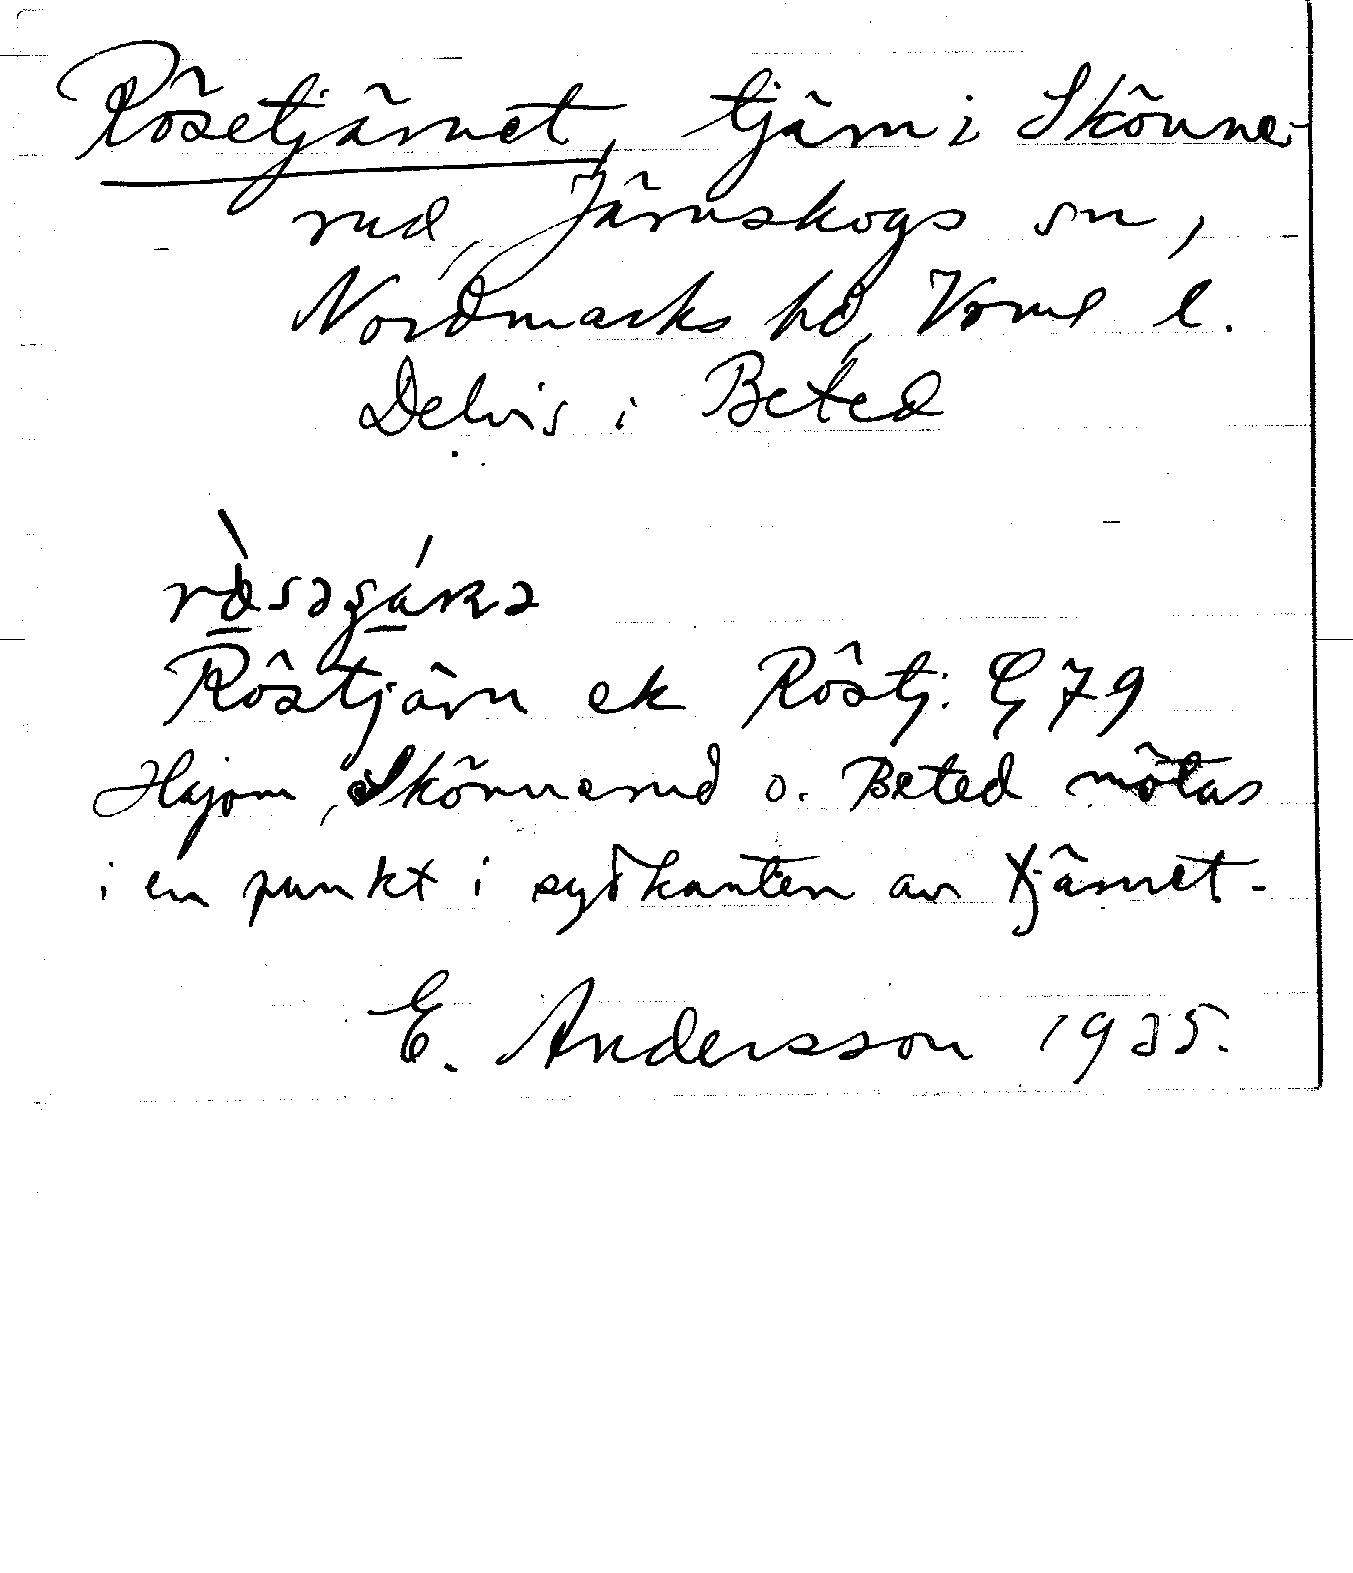 Rösetjärnet, tjärn i Skönne-
rud, Järnskogs sn,
Nordmarks hd, Vrml l.
Delvis i Beted
Röstjärn ek Röstj. G 79
Hajom, Skönnerud o. Beted mötas
i en punkt i sydkanten av tjärnet.
E. Andersson 1935.